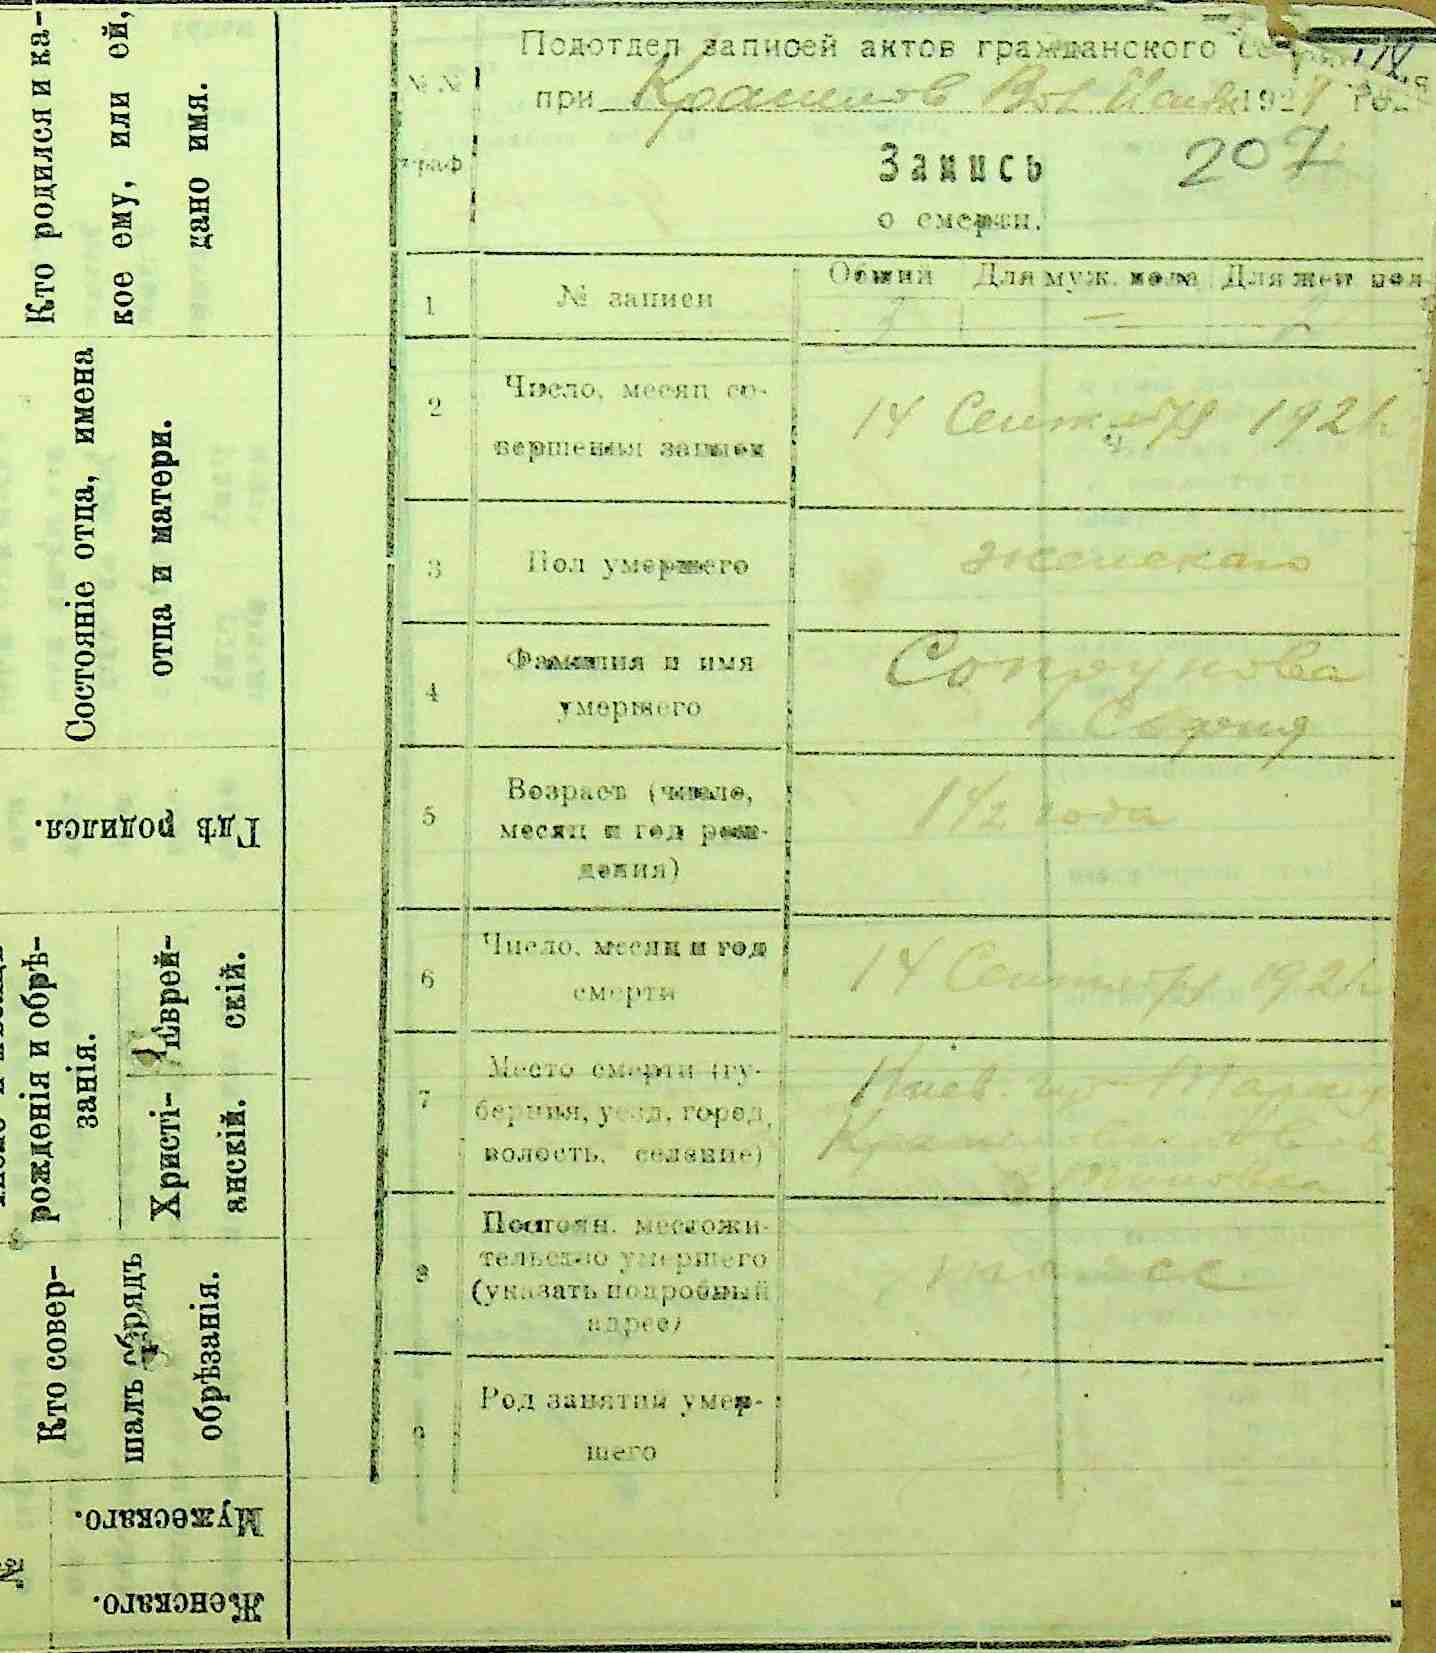 Кто родился и ка-
кое ему, или ей,
дано имя.
Состоянiе отца, имена
отца и матери.
Гдѣ родился.
рожденiя и обрѣ-
занiя.
Еврей-
скiй.
Христi-
анскiй.
Кто совер-
шалъ обрядъ
обрѣзанiя.
Мужескаго.
Женскаго.
№
Подотдел записей актов гражданского
при 192 года
№№
граф
Запись 207
о смерти.
1 № записи Общий Для муж. пола Для жен пол
2 Число, месяц со-
вершенья записи
14 Сентября 1921
3 Пол умершего женскаго
4 Фамилия и имя
умершего
Сопрунова
5 Возраст (число,
месяц и год рож-
дения)
1 1/2 года
6 Число, месяц и год
смерти
14 Сентября 1921
7 Место смерти (гу-
берния, уезд, город,
волость, селение)
Киев. гу
8 Постоян. местожи-
тельство умершего
(указать подробный
адрес)
9 Род занятий умер-
шего